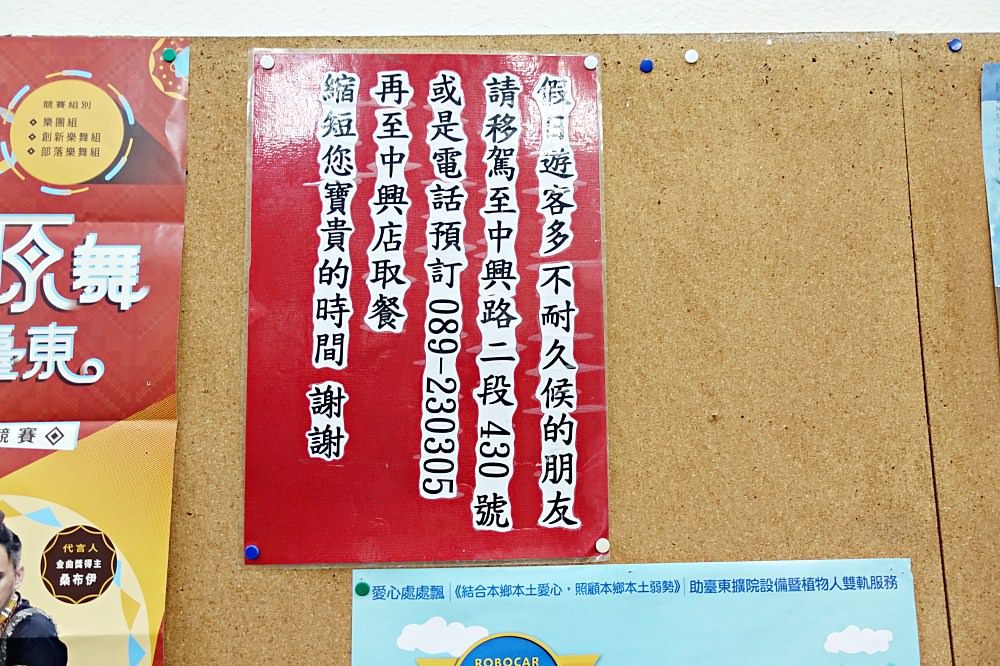 假日遊客多 不耐久候的朋友
請移駕至中興路二段 430 號
或是電話預訂 089-230305
再至中興店取餐
縮短您寶貴的時間 謝謝
競賽組別
樂團組
創新樂舞組
部落樂舞組
原舞
臺東
競賽
代言人
金曲獎得主
桑布伊
愛心處處飄 |《結合本鄉本土愛心・照顧本鄉本土弱勢》| 助臺東擴院設備暨植物人雙軌服務
ROBOCAR